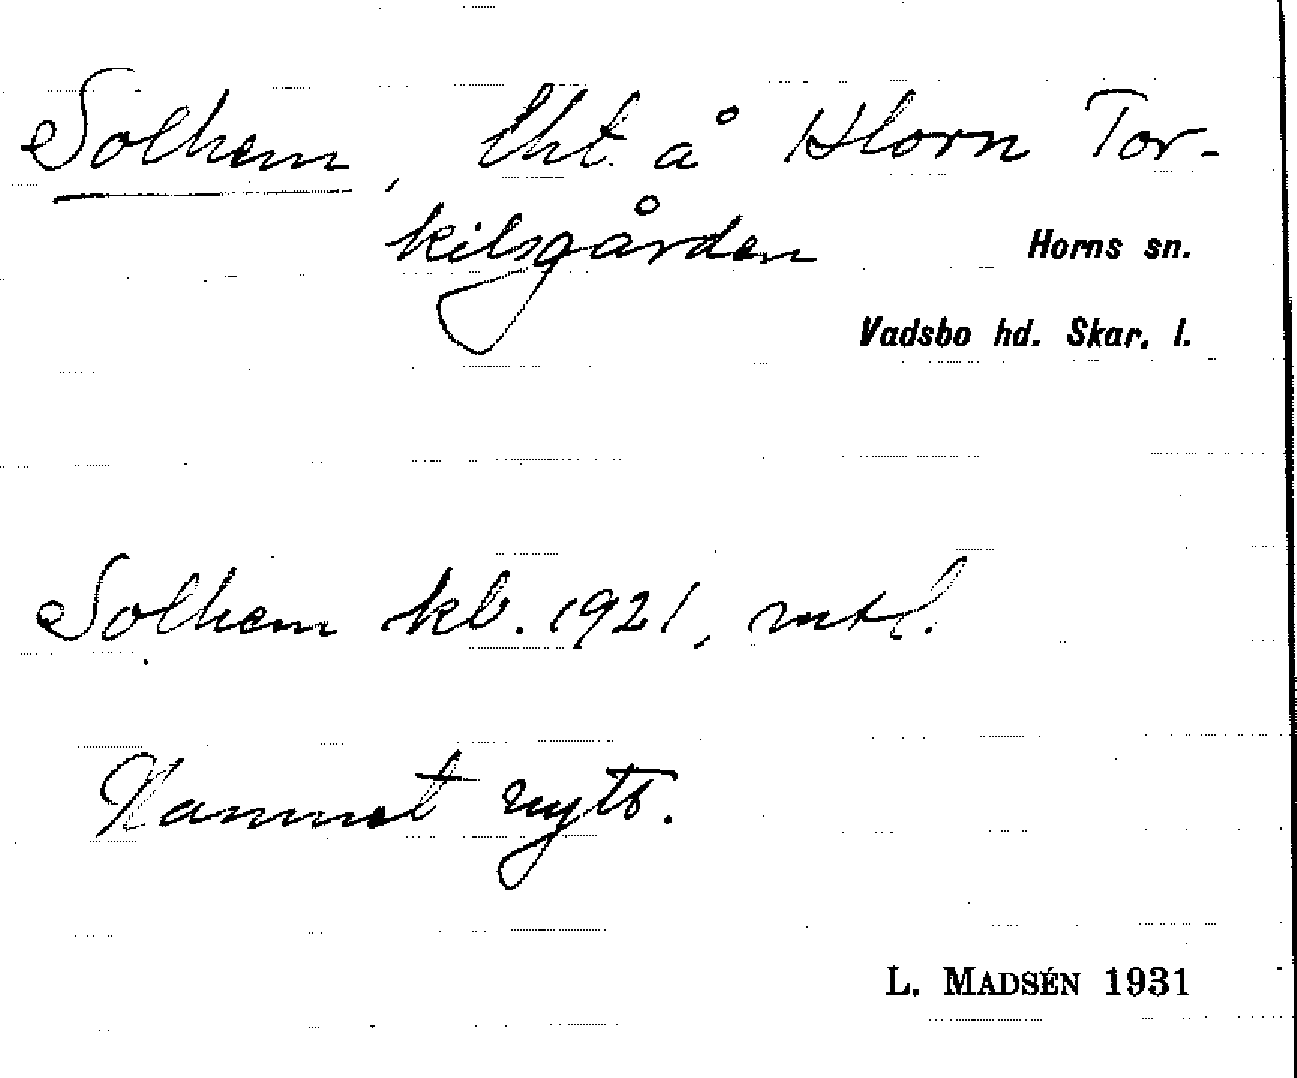 Solhem, lht. å Horn Tor-
kilsgården
Horns sn.
Vadsbo hd. Skar. l.
Solhem kb. 1921, mtl.
Namnet nytt.
L. MADSÉN 1931